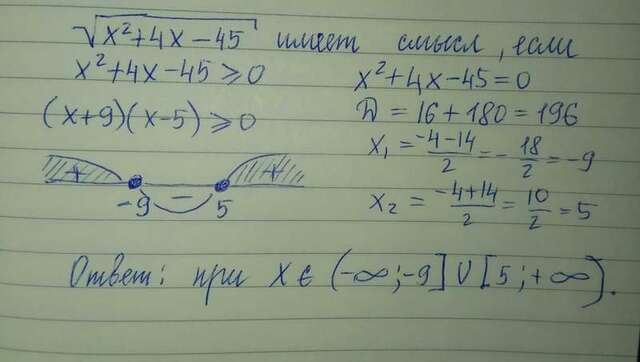 √x²+4x-45 имеет смысл, если
x²+4x-45⩾0
(x+9)(x-5)⩾0
+ - +
-9 5
x²+4x-45=0
D=16+180=196
x₁=(-4-14)/2=-18/2=-9
x₂=(-4+14)/2=10/2=5
Ответ: при x∈(-∞;-9]∪[5;+∞).